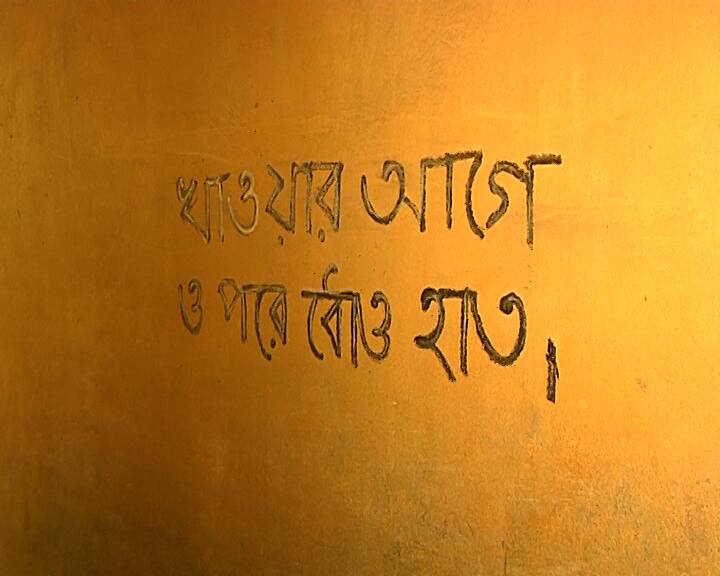 খাওয়ার আগে
ও পরে ধোও হাত।